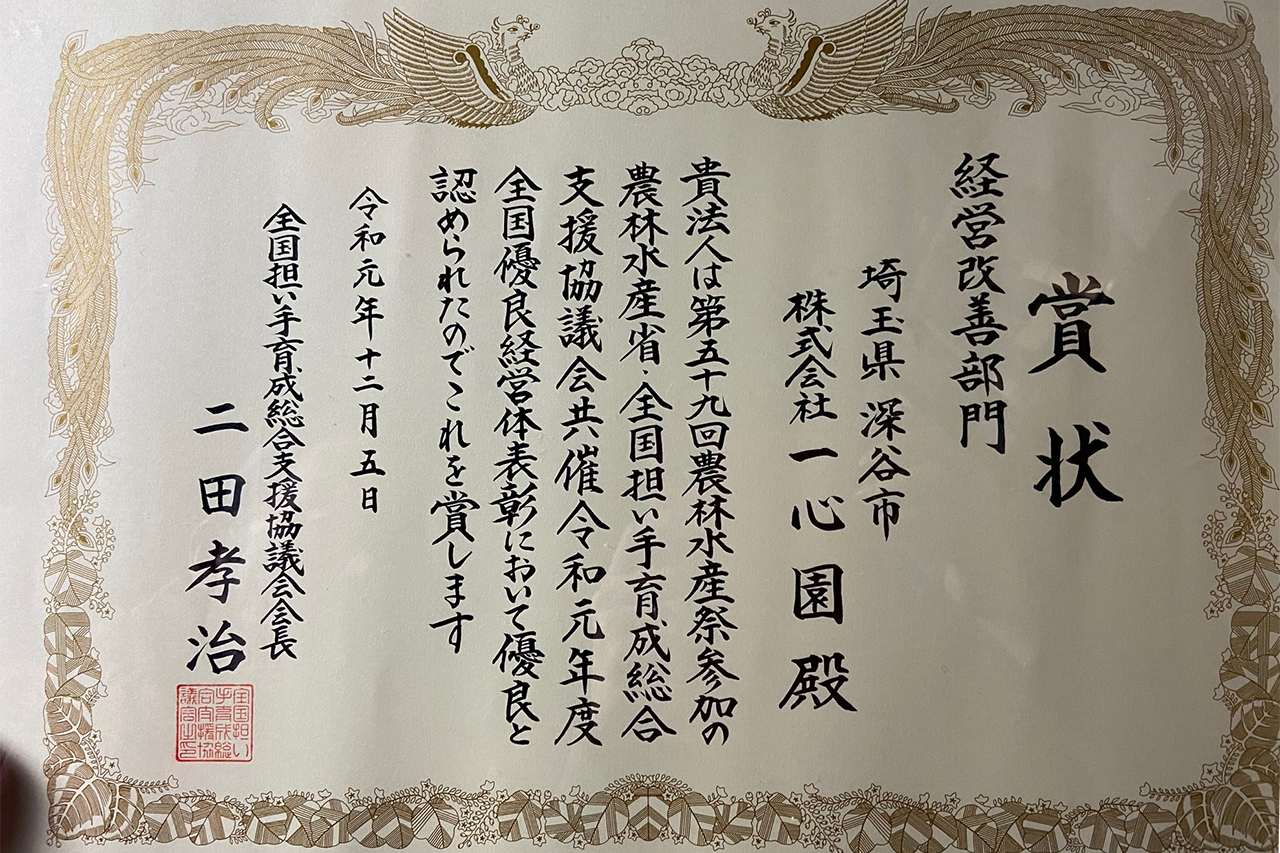 賞状
経営改善部門
埼玉県 深谷市
株式会社 一心園 殿
貴法人は第五十九回農林水産祭参加の
農林水産省・全国担い手育成総合
支援協議会共催令和元年度
全国優良経営体表彰において優良と
認められたのでこれを賞します
令和元年十二月五日
全国担い手育成総合支援協議会会長
二田孝治
全国担い
手育成総
合支援協
議会之印